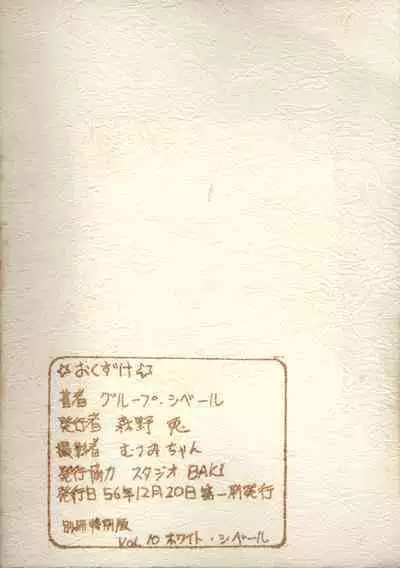 ☆おくずけ☆
著者 グループ・シベール
発行者 萩野 兎
撮影者 むつみちゃん
発行協力 スタジオBAKI
発行日 56年12月20日第一刷発行
別冊特別版
VOL.10 ホワイト・シベール